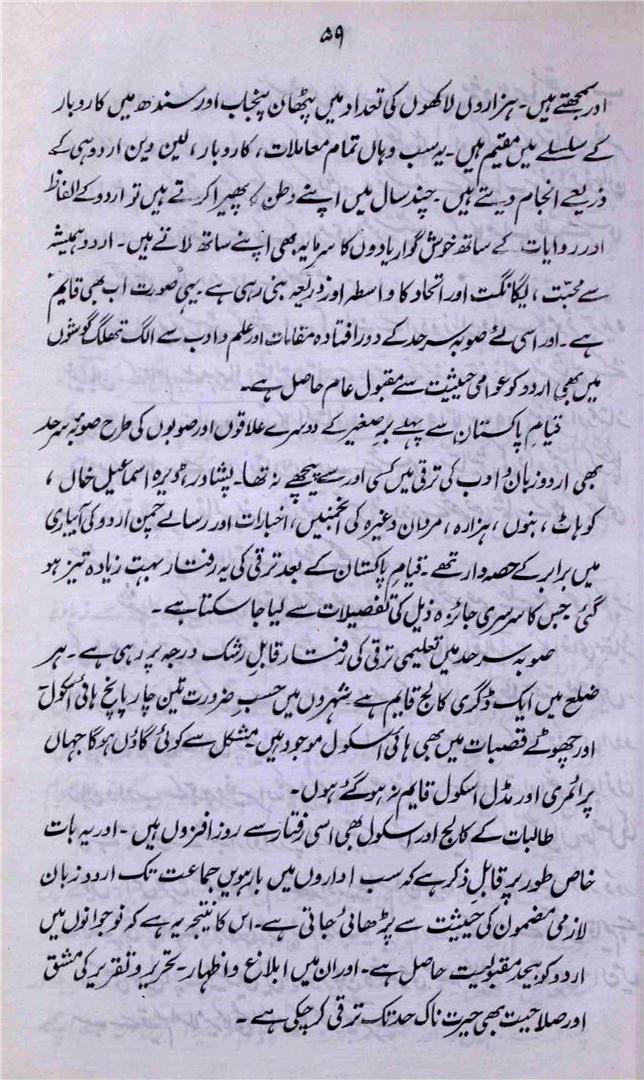 ۵۹
اور سمجھتے ہیں۔ ہزاروں لاکھوں کی تعداد میں پٹھان پنجاب اور سندھ میں کاروبار
کے سلسلے میں مقیم ہیں۔ یہ سب وہاں تمام معاملات، کاروبار، لین دین اردو ہی کے
ذریعے انجام دیتے ہیں۔ چند سال میں اپنے وطن کا پھیرا کرتے ہیں تو اردو کے الفاظ
اور روایات کے ساتھ خوش گوار یادوں کا سرمایہ بھی اپنے ساتھ لاتے ہیں۔ اردو ہمیشہ
سے محبت، یگانگت اور اتحاد کا واسطہ اور ذریعہ بنی رہی ہے یہی صورت اب بھی قایم
ہے۔ اور اسی لئے صوبہ سرحد کے دور افتادہ مقامات اور علم و ادب سے الگ تھلگ گوشوں
میں بھی اردو کو عوامی حیثیت سے مقبول عام حاصل ہے۔
قیام پاکستان سے پہلے برصغیر کے دوسرے علاقوں اور صوبوں کی طرح صوبۂ سرحد
بھی اردو زبان و ادب کی ترقی میں کسی اور سے پیچھے نہ تھا۔ پشاور، ڈیرہ اسماعیل خاں،
کوہاٹ، بنوں، ہزارہ، مردان وغیرہ کی انجمنیں، اخبارات اور رسالے چمن اردو کی آبیاری
میں برابر کے حصہ دار تھے۔ قیام پاکستان کے بعد ترقی کی یہ رفتار بہت زیادہ تیز ہو
گئی جس کا سرسری جائزہ ذیل کی تفصیلات سے لیا جا سکتا ہے۔
صوبہ سرحد میں تعلیمی ترقی کی رفتار قابلِ رشک درجہ پر رہی ہے۔ ہر
ضلع میں ایک ڈگری کالج قایم ہے شہروں میں حسبِ ضرورت تین چار پانچ ہائی اسکول
اور چھوٹے قصبات میں بھی ہائی اسکول موجود ہیں مشکل سے کوئی گاؤں ہوگا جہاں
پرائمری اور مڈل اسکول قایم نہ ہو گئے ہوں۔
طالبات کے کالج اور اسکول بھی اسی رفتار سے روز افزوں ہیں۔ اور یہ بات
خاص طور پر قابلِ ذکر ہے کہ سب اداروں میں بارہویں جماعت تک اردو زبان
لازمی مضمون کی حیثیت سے پڑھائی جاتی ہے۔ اس کا نتیجہ یہ ہے کہ نوجوانوں میں
اردو کو بیحد مقبولیت حاصل ہے۔ اور ان میں ابلاغ و اظہار۔ تحریر و تقریر کی مشق
اور صلاحیت بھی حیرت ناک حد تک ترقی کر چکی ہے۔